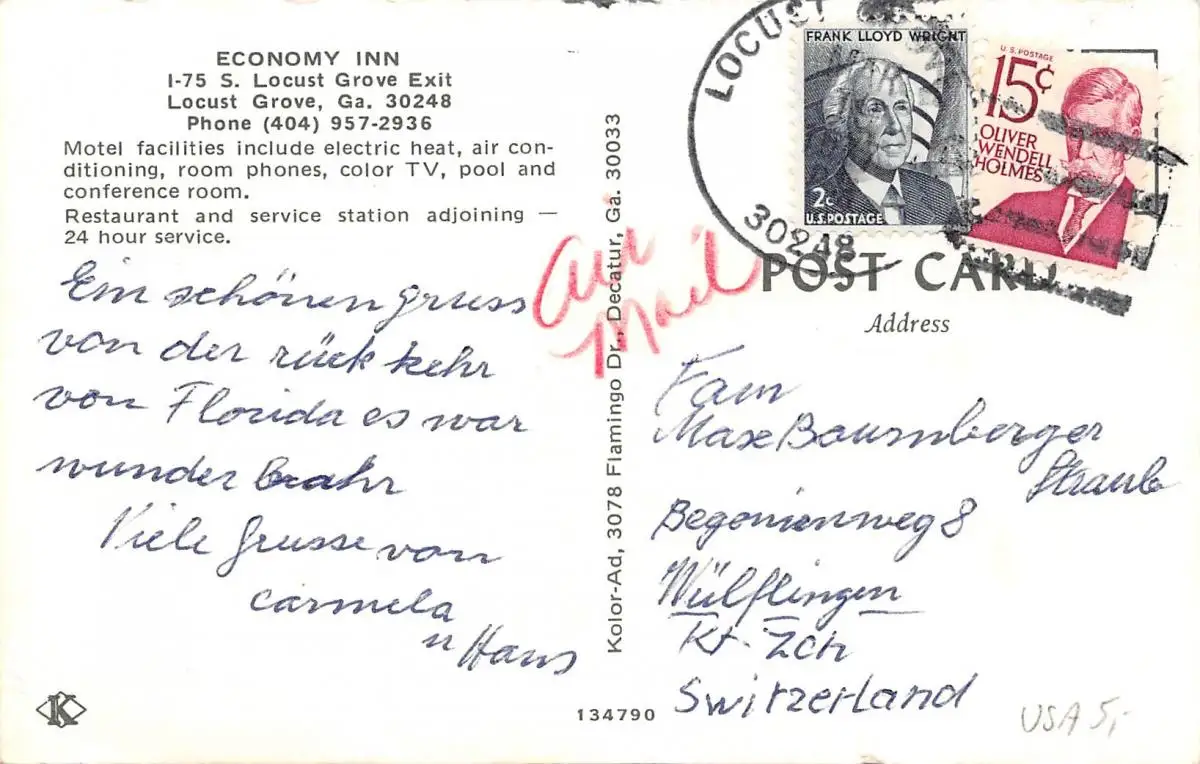 ECONOMY INN
I-75 S. Locust Grove Exit
Locust Grove, Ga. 30248
Phone (404) 957-2936
Motel facilities include electric heat, air con-
ditioning, room phones, color TV, pool and
conference room.
Restaurant and service station adjoining —
24 hour service.
Ein schönen gruss
von der rückkehr
von Florida es war
wunder brahr
Viele grusse von
Carmela
u Hans
K
Kolor-Ad, 3078 Flamingo Dr., Decatur, Ga. 30033
134790
air
Mail
LOCUST
30248
FRANK LLOYD WRIGHT
2c
U.S. POSTAGE
U.S. POSTAGE
15¢
OLIVER
WENDELL
HOLMES
POST CARD
Address
Fam
Max Baumberger
Straub
Begonienweg 8
Wülflingen
Kt. Zch
Switzerland
USA 5,-